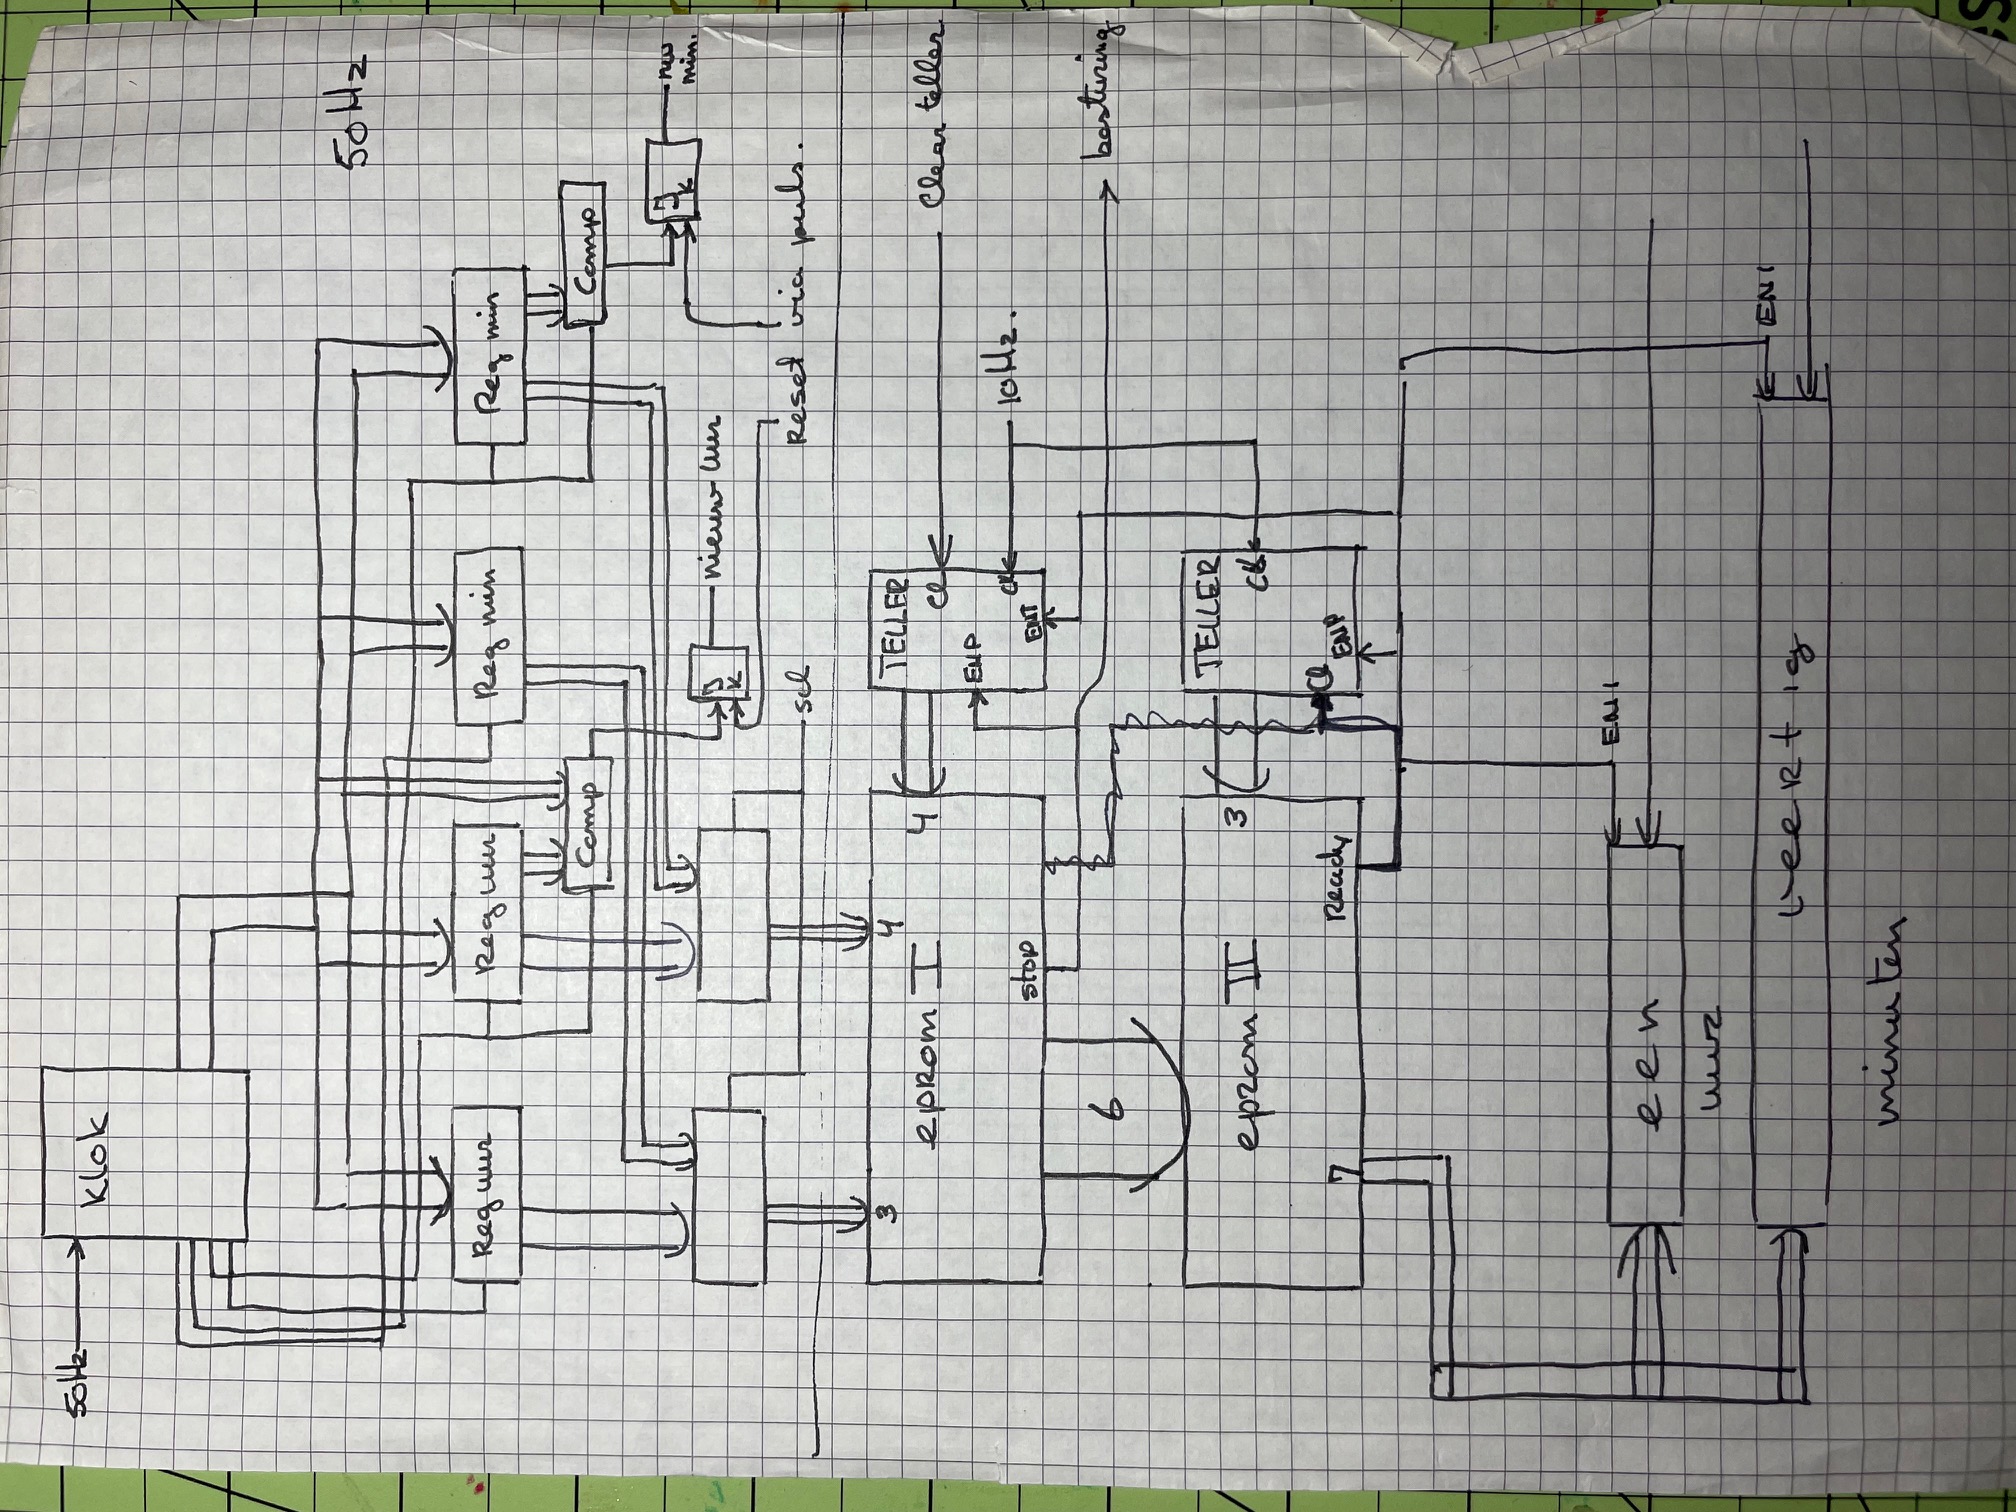 50Hz
Klok
50Hz
Reg uur
Reg uur
Reg min
Reg min
Comp
Comp
J
K
nieuw uur
J
K
nw
min.
Reset via puls.
sel
3
4
eprom I
4
TELLER
Cl
CK
ENP
ENT
Clear teller
10Hz.
besturing
stop
6
eprom II
3
TELLER
Ck
Cl
ENP
Ready
7
EN1
een
uur
EN1
veertig
minuten